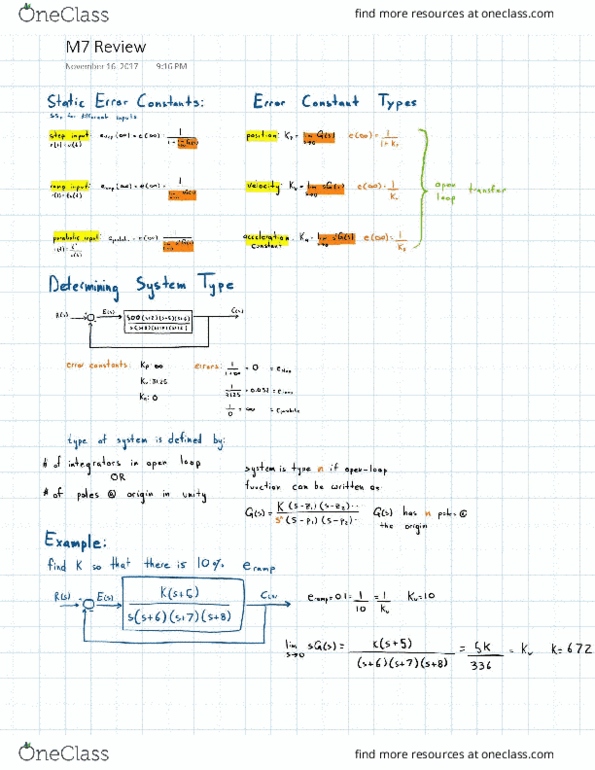 OneClass
find more resources at oneclass.com
M7 Review
November 16, 2017 9:16 PM
Static Error Constants: Error Constant Types
ss, for different inputs
step input: e_step(∞) = e(∞) = 1 / 1 + lim G(s)
position: Kp = lim s→0 G(s) e(∞) = 1 / 1 + Kp
ramp input: e_ramp(∞) = e(∞) = 1 / lim sG(s)
velocity: Kv = lim s→0 sG(s) e(∞) = 1 / Kv
parabolic input: e_parab. = e(∞) 1 / lim s²G(s)
acceleration constant: Ka = lim s→0 s²G(s) e(∞) = 1 /
open loop transfer
Determining System Type
R(s) E(s) 500(s+2)(s+5)(s+6) C(s)
error constants: Kp = ∞ errors: 1 / 1+∞ = 0 = e_step
Kv = 31.25 1 / 31.25 = 0.032 = e_ramp
Ka = 0 1 / 0 = ∞ = e_parabola
type of system is defined by:
# of integrators in open loop
OR
# of poles @ origin in unity
system is type n if open-loop
function can be written as:
G(s) = K(s-z₁)(s-z₂)... / sⁿ(s-p₁)(s-p₂)... G(s) has n poles @
the origin
Example:
find K so that there is 10% e_ramp
R(s) E(s) K(s+5) / s(s+6)(s+7)(s+8) C(s)
e_ramp = 0.1 = 1 / 10 = 1 / Kv Kv = 10
lim s→0 sG(s) = K(s+5) / (s+6)(s+7)(s+8) = 5K / 336 = Kv K = 672
OneClass
find more resources at oneclass.com